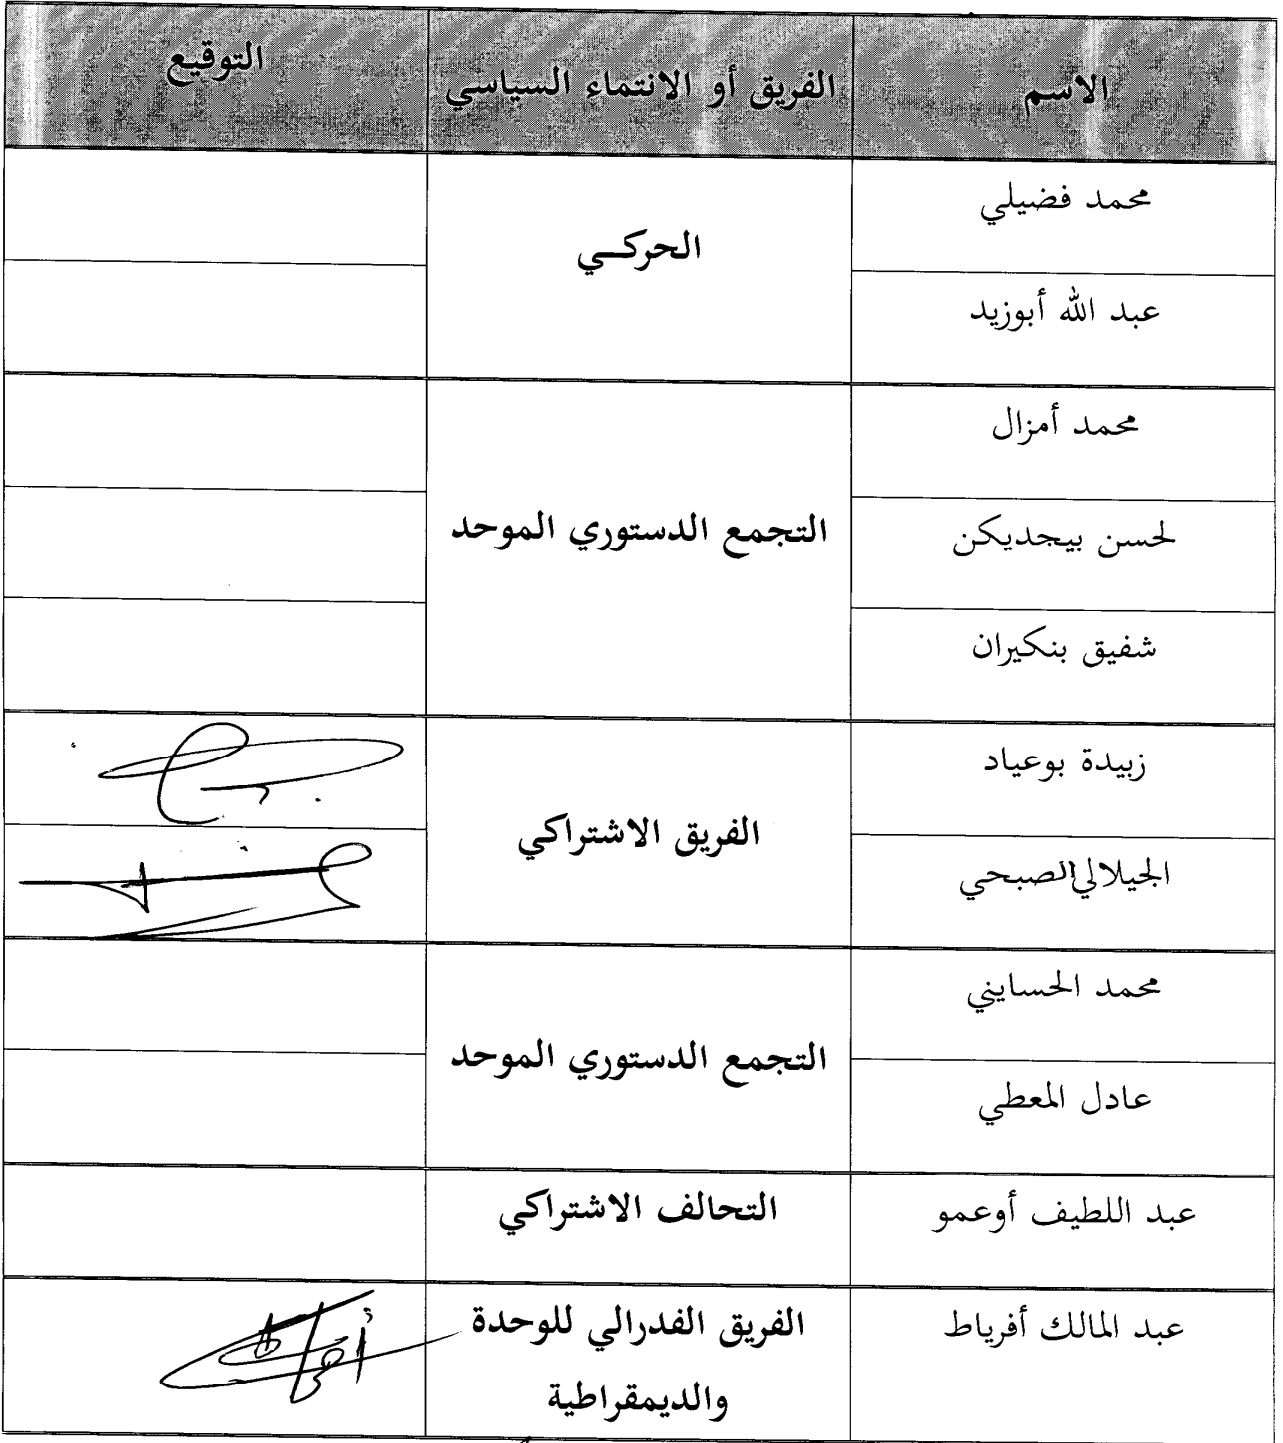 الاسم الفريق أو الانتماء السياسي التوقيع
محمد فضيلي
الحركـــي
عبد الله أبوزيد
محمد أمزال
لحسن بيجديكن
التجمع الدستوري الموحد
شفيق بنكيران
زبيدة بوعياد
الفريق الاشتراكي
الجيلالي الصبحي
محمد الحسايني
التجمع الدستوري الموحد
عادل المعطي
عبد اللطيف أوعمو
التحالف الاشتراكي
عبد المالك أفرياط
الفريق الفدرالي للوحدة
والديمقراطية